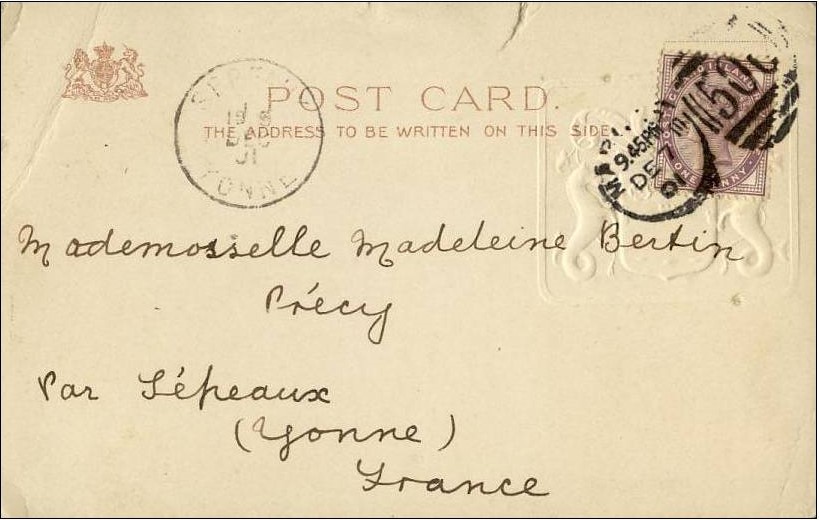 POST CARD.
THE ADDRESS TO BE WRITTEN ON THIS SIDE
YONNE
9.45PM
DE 7
01
ONE PENNY
Mademosselle Madeleine Bertin
Précy
Par Sépeaux
(Yonne)
France